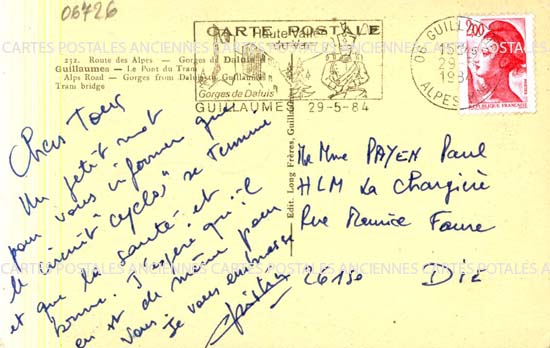 06726
CARTE POSTALE
Route
du Var
Gorges de Daluis
GUILLAUMES 29-5-84
06 GUILLAUMES
15H
29-5
1984
ALPES
2,00
REPUBLIQUE FRANÇAISE
252. Route des Alpes — Gorges de Daluis
Guillaumes — Le Pont du Tram
Alps Road — Gorges from Daluis to Guillaumes
Tram bridge
Edit. Long Frères, Guillaumes
Chers Tous
Un petit mot
pour vous informer que
le circuit "cyclos" se termine
et que la santé est
bonne. J'espère qu'il
en est de même pour
vous je vous embrasse
Christian
Mr Mme PAYEN Paul
HLM La Chargière
Rue Maurice Faure
26150 DIE
CARTES POSTALES ANCIENNES CARTES POSTALES ANCIENNES CARTES POSTALES ANCIENNES